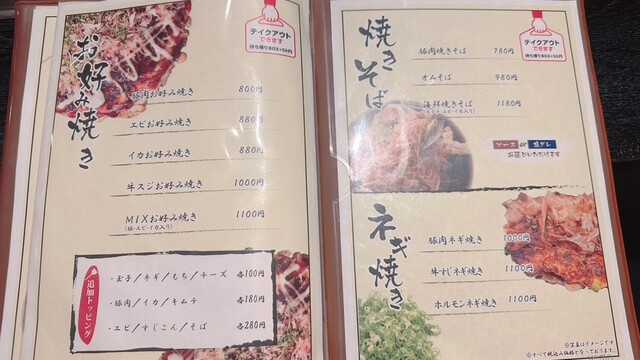 お好み焼き
テイクアウト
できます
持ち帰りBOX+50円
豚肉お好み焼き 800円
エビお好み焼き 880円
イカお好み焼き 880円
牛スジお好み焼き 1000円
MIXお好み焼き 1100円
(豚・エビ・イカ入り)
追加トッピング
・玉子/ネギ/もち/チーズ 各100円
・豚肉/イカ/キムチ 各180円
・エビ/すじこん/そば 各280円
焼きそば
テイクアウト
できます
持ち帰りBOX+50円
豚肉焼きそば 780円
オムそば 980円
海鮮焼きそば 1180円
ソース or 塩ダレ
お選びいただけます
ネギ焼き
豚肉ネギ焼き 1000円
牛すじネギ焼き 1100円
ホルモンネギ焼き 1100円
※写真はイメージです
※すべて税込み価格となっております。